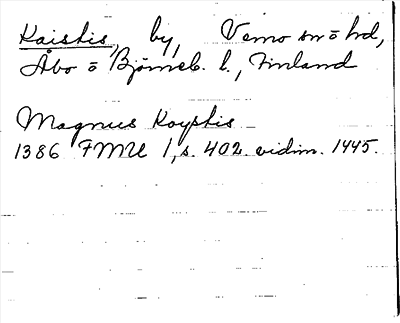 Kaistis, by, Vemo sn o hd,
Åbo o Björneb. l., Finland
Magnus Koystis
1386 FMU 1, s. 402. vidim. 1445.